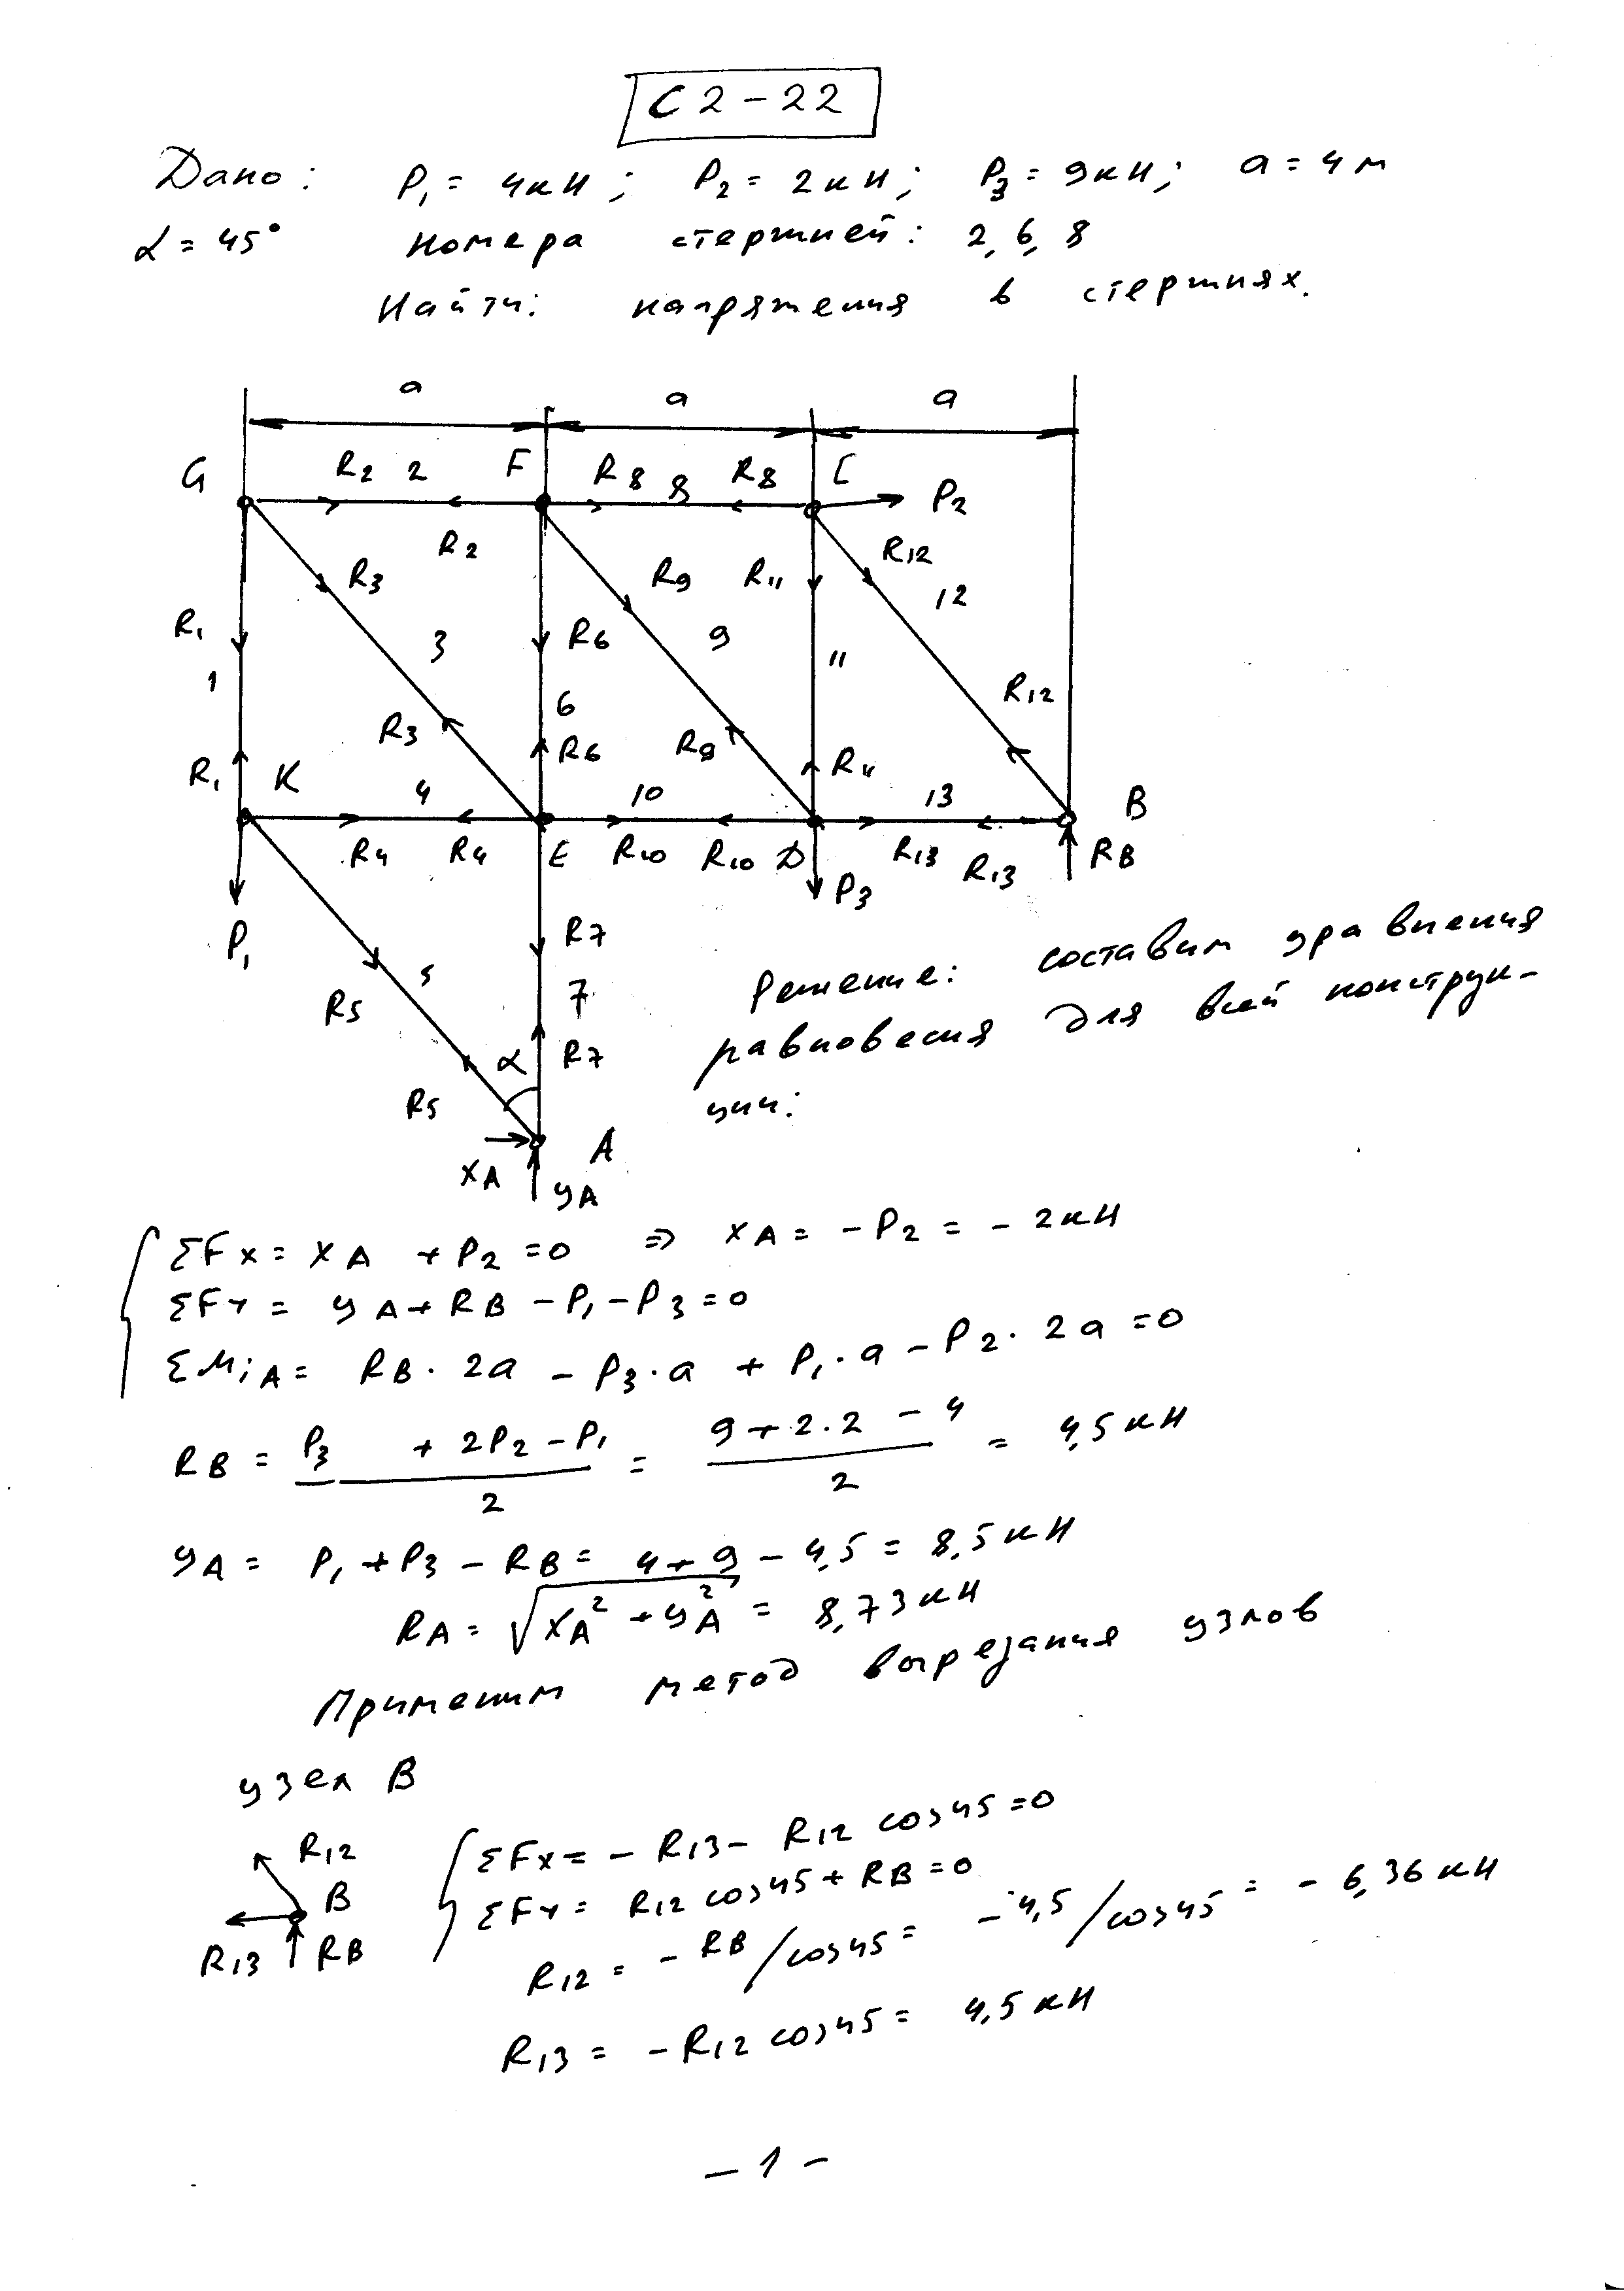 С 2 - 22
Дано: P₁ = 4кН; P₂ = 2кН; P₃ = 9кН; a = 4 м
α = 45° номера стержней: 2, 6, 8
Найти: напряжения в стержнях.
a a a
G R₂ 2 F R₈ 8 R₈ C P₂
R₂ R₁₂
R₃ R₉ R₁₁ 12
R₁ 3 R₆ 9 11
1 6 R₁₂
R₃ R₆ R₉ R₁₁
R₁ K 4 10 13 B
R₄ R₄ E R₁₀ R₁₀ D R₁₃ R₁₃ RB
P₁ P₃
R₇
R₅ 5 7
α R₇
R₅
XA A
yA
Решение: составим уравнения
равновесия для всей конструк-
ции:
ΣFx = XA + P₂ = 0 ⇒ XA = - P₂ = - 2кН
ΣFY = yA + RB - P₁ - P₃ = 0
ΣMiA = RB · 2a - P₃ · a + P₁ · a - P₂ · 2a = 0
RB = (P₃ + 2P₂ - P₁) / 2 = (9 + 2·2 - 4) / 2 = 4,5 кН
yA = P₁ + P₃ - RB = 4 + 9 - 4,5 = 8,5 кН
RA = √(XA² + yA²) = 8,73 кН
Применим метод вырезания узлов
узел B
R₁₂ B R₁₃ RB
ΣFx = - R₁₃ - R₁₂ cos45 = 0
ΣFY = R₁₂ cos45 + RB = 0
R₁₂ = - RB / cos45 = - 4,5 / cos45 = - 6,36 кН
R₁₃ = - R₁₂ cos45 = 4,5 кН
- 1 -